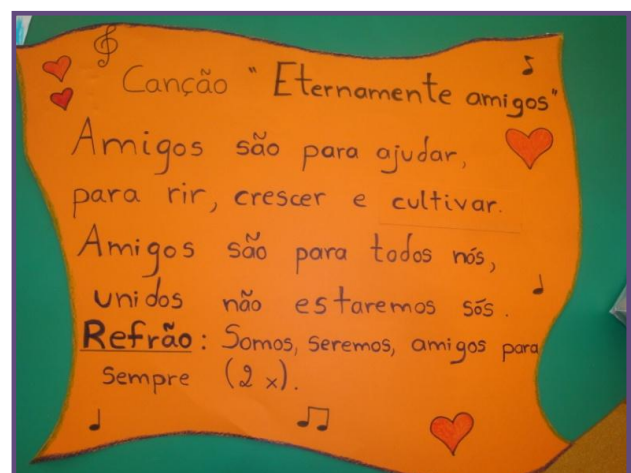 Canção "Eternamente amigos"
Amigos são para ajudar,
para rir, crescer e cultivar.
Amigos são para todos nós,
unidos não estaremos sós.
Refrão: Somos, seremos, amigos para
sempre (2 x).